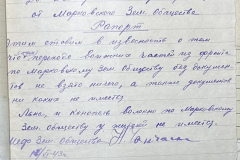 от Марковского Зем. Общества.
Рапорт
Этим ставлю в известность о том
что перевоза Военных частей из фронта
по Марковскому Зем. Обществу без докумен
тов не взято ничего, а также документов
ни каких не имеется
Льна, и Конопли Волокно по Марковскому
Зем. обществу у людей не имеется.
Зем. Общества